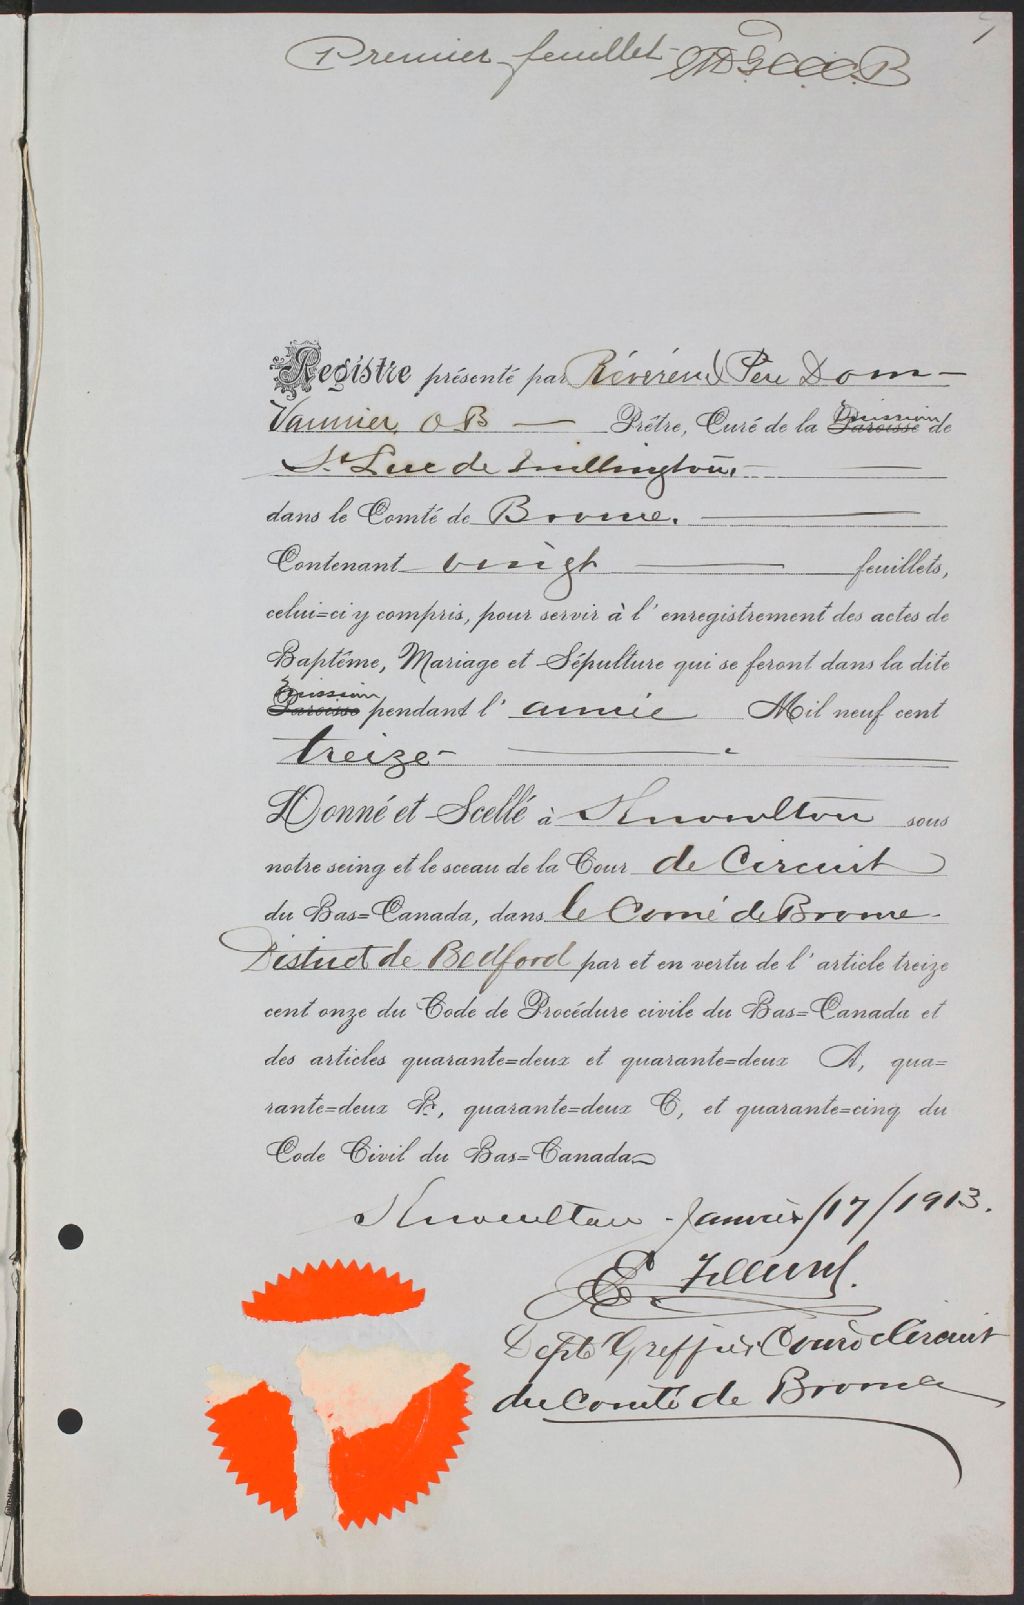 Premier feuillet
Registre présenté par Révérend Père Dom
Vannier, O B Prêtre, Curé de la Paroisse Mission de
St Luc de Millington,
dans le Comté de Brome.
Contenant vingt feuillets,
celui=ci y compris, pour servir à l' enregistrement des actes de
Baptême, Mariage et Sépulture qui se feront dans la dite
Paroisse Mission pendant l' année Mil neuf cent
treize
Donné et Scellé à Knowlton sous
notre seing et le sceau de la Cour de Circuit
du Bas=Canada, dans le Comé de Brome
District de Bedford par et en vertu de l' article treize
cent onze du Code de Procédure civile du Bas=Canada et
des articles quarante=deux et quarante=deux A, qua=
rante=deux B, quarante=deux C, et quarante=cinq du
Code Civil du Bas=Canada
Knowlton Janvier/17/1913.
E.
Dept Greffier Cour d Circuit
du Comté de Brome